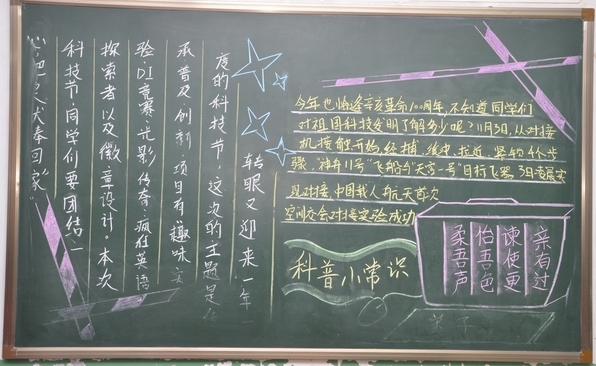 转眼又迎来一年
度的科技节,这次的主题是
承·普及·创新。项目有趣味实
验·DI竞赛·光影传奇·疯狂英语
探索者以及徽章设计。本次
科技节,同学们要团结一
心,把 回家"
今年也恰逢辛亥革命100周年,不知道同学们
对祖国科技发明了解多少呢?11月3日,从对接
机接触开始,经捕 缓冲,拉近,紧锁4个步
骤,"神舟八号"飞船与"天宫一号"目标飞行器,3日凌晨实
现对接,中国载人航天首次
空间交会对接实验成功
科普小常识
亲有过
谏使更
怡吾色
柔吾声